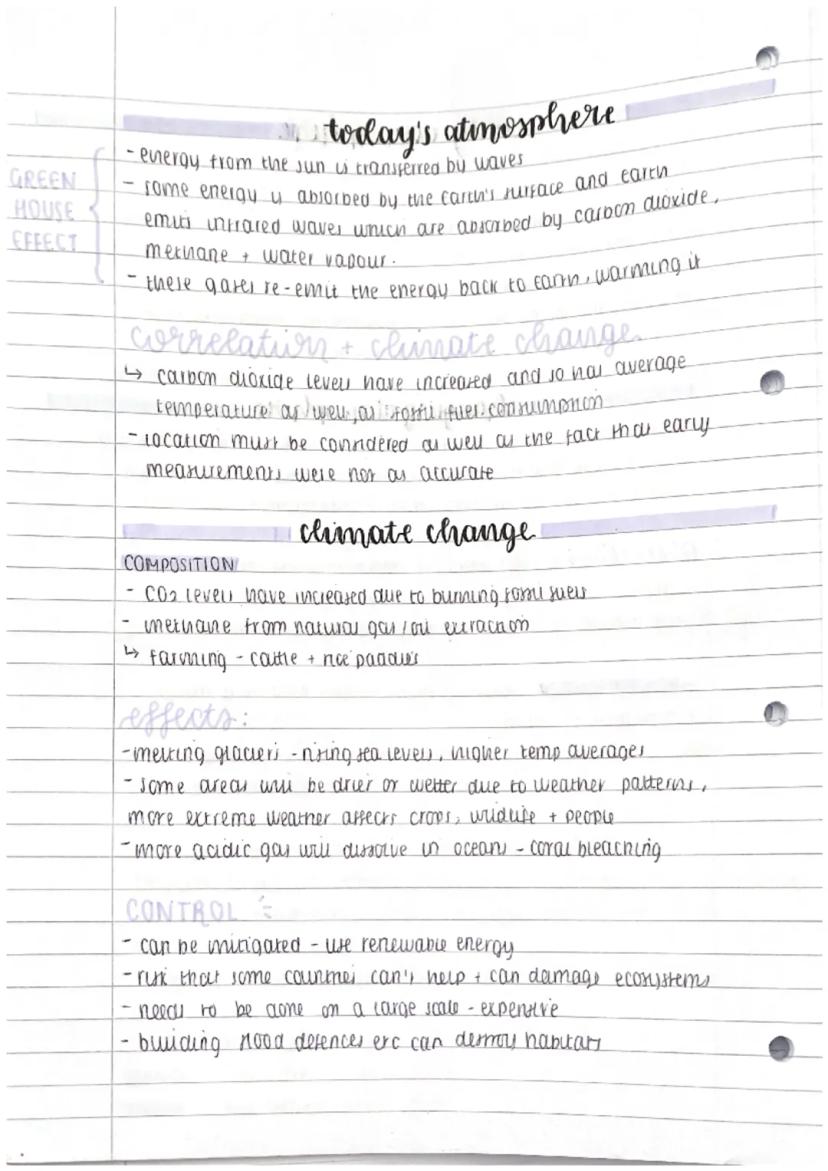 today's atmosphere
GREEN
HOUSE
EFFECT
- energy from the sun is transferred by waves
- some energy is absorbed by the earth's surface and earth
emits infrared waves which are absorbed by carbon dioxide,
methane + water vapour.
- these gases re-emit the energy back to earth, warming it
correlation + climate change
↳ carbon dioxide levels have increased and so has average
temperature as well as fossil fuel consumption
- location must be considered as well as the fact that early
measurements were not as accurate
climate change
COMPOSITION
- CO2 levels have increased due to burning fossil fuels
- methane from natural gas / oil extraction
↳ farming - cattle + rice paddies
effects:
- melting glaciers - rising sea levels, higher temp averages
- some areas will be drier or wetter due to weather patterns,
more extreme weather affects crops, wildlife + people
- more acidic gas will dissolve in oceans - coral bleaching
CONTROL
- can be mitigated - use renewable energy
- risk that some countries can't help + can damage ecosystems
- needs to be done on a large scale - expensive
- building flood defences etc can destroy habitats